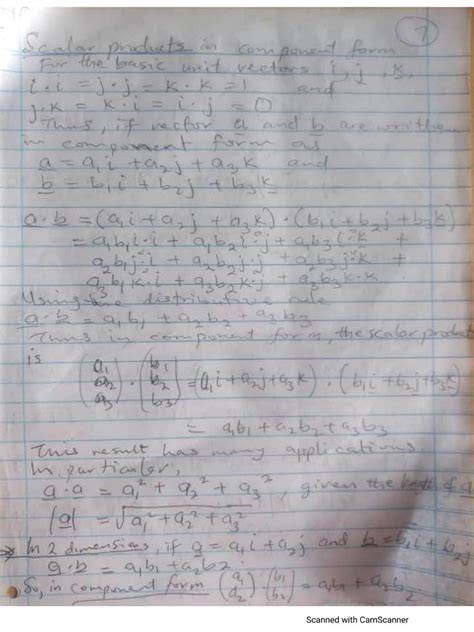 7
Scalar products in component form
For the basic unit vectors i, j, k,
i·i = j·j = k·k = 1 and
j·k = k·i = i·j = 0
Thus, if vector a and b are written
in component form as
a = a₁i + a₂j + a₃k and
b = b₁i + b₂j + b₃k
a·b = (a₁i + a₂j + a₃k)·(b₁i + b₂j + b₃k)
= a₁b₁i·i + a₁b₂i·j + a₁b₃i·k +
a₂b₁j·i + a₂b₂j·j + a₂b₃j·k +
a₃b₁k·i + a₃b₂k·j + a₃b₃k·k.
Using the distributive rule
a·b = a₁b₁ + a₂b₂ + a₃b₃
Thus in component form, the scalar product
is
(a₁ a₂ a₃)·(b₁ b₂ b₃) = (a₁i + a₂j + a₃k)·(b₁i + b₂j + b₃k)
= a₁b₁ + a₂b₂ + a₃b₃
This result has many applications.
In particular,
a·a = a₁² + a₂² + a₃², given the length of a
|a| = √a₁² + a₂² + a₃²
→ In 2 dimensions, if a = a₁i + a₂j and b = b₁i + b₂j
a·b = a₁b₁ + a₂b₂.
So, in component form (a₁ a₂)·(b₁ b₂) = a₁b₁ + a₂b₂
Scanned with CamScanner